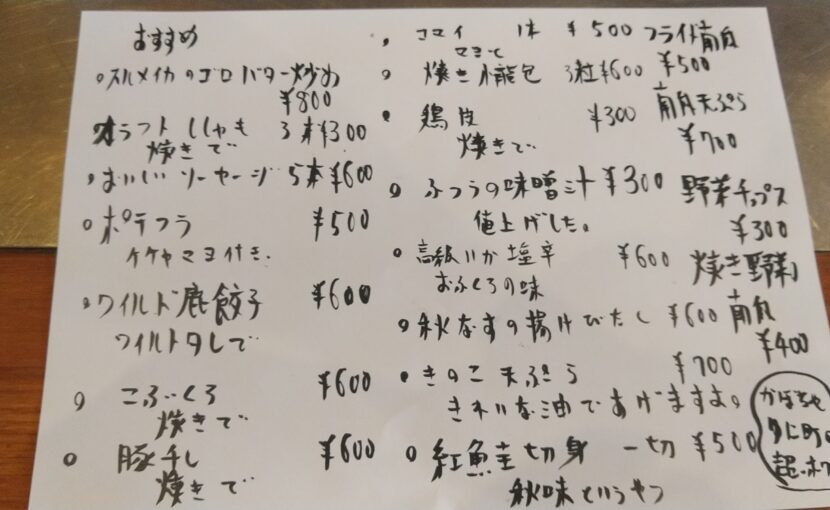 おすすめ
スルメイカのゴロバター炒め
¥800
オラフトししゃも 3本¥300
焼きで
おいしいソーセージ 5本¥600
ポテフラ ¥500
ケチャマヨ付き.
ワイルド鹿餃子 ¥600
ワイルドタレで
こぶくろ ¥600
焼きで
豚干し ¥600
焼きで
コマイ 1本 ¥500
マヨで
焼き小龍包 3粒¥600
鶏皮 ¥300
焼きで
ふつうの味噌汁 ¥300
値上げした。
高級いか塩辛 ¥600
おふくろの味
秋なすの揚げびたし ¥600
きのこ天ぷら ¥700
きれいな油であげますよ。
紅鮭切身 一切 ¥500
秋味というやつ
フライド南瓜
¥500
南瓜天ぷら
¥700
野菜チップス
¥300
焼き野菜
南瓜
¥400
かぼちゃ